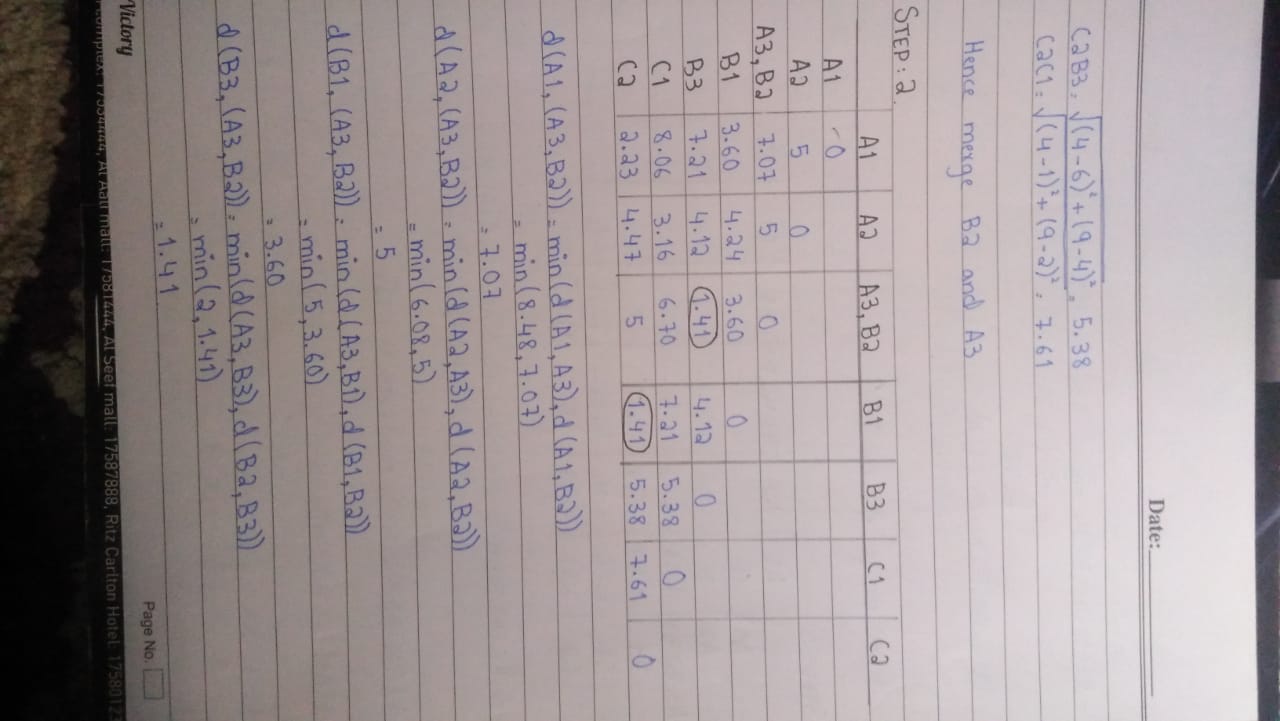 Date:
C2B3 = √(4-6)² + (9-4)² = 5.38
C2C1 = √(4-1)² + (9-2)² = 7.61
Hence merge B2 and A3
STEP: 2
A1 A2 A3, B2 B1 B3 C1 C2
A1 0
A2 5 0
A3, B2 7.07 5 0
B1 3.60 4.24 3.60 0
B3 7.21 4.12 1.41 4.12 0
C1 8.06 3.16 6.70 7.21 5.38 0
C2 2.23 4.47 5 1.41 5.38 7.61 0
d(A1, (A3, B2)) = min(d(A1, A3), d(A1, B2))
= min(8.48, 7.07)
= 7.07
d(A2, (A3, B2)) = min(d(A2, A3), d(A2, B2))
= min(6.08, 5)
= 5
d(B1, (A3, B2)) = min(d(A3, B1), d(B1, B2))
= min(5, 3.60)
= 3.60
d(B3, (A3, B2)) = min(d(A3, B3), d(B2, B3))
= min(2, 1.41)
= 1.41
Victory
Page No.
17581444, Al Seef mall: 17587888, Ritz Carlton Hotel: